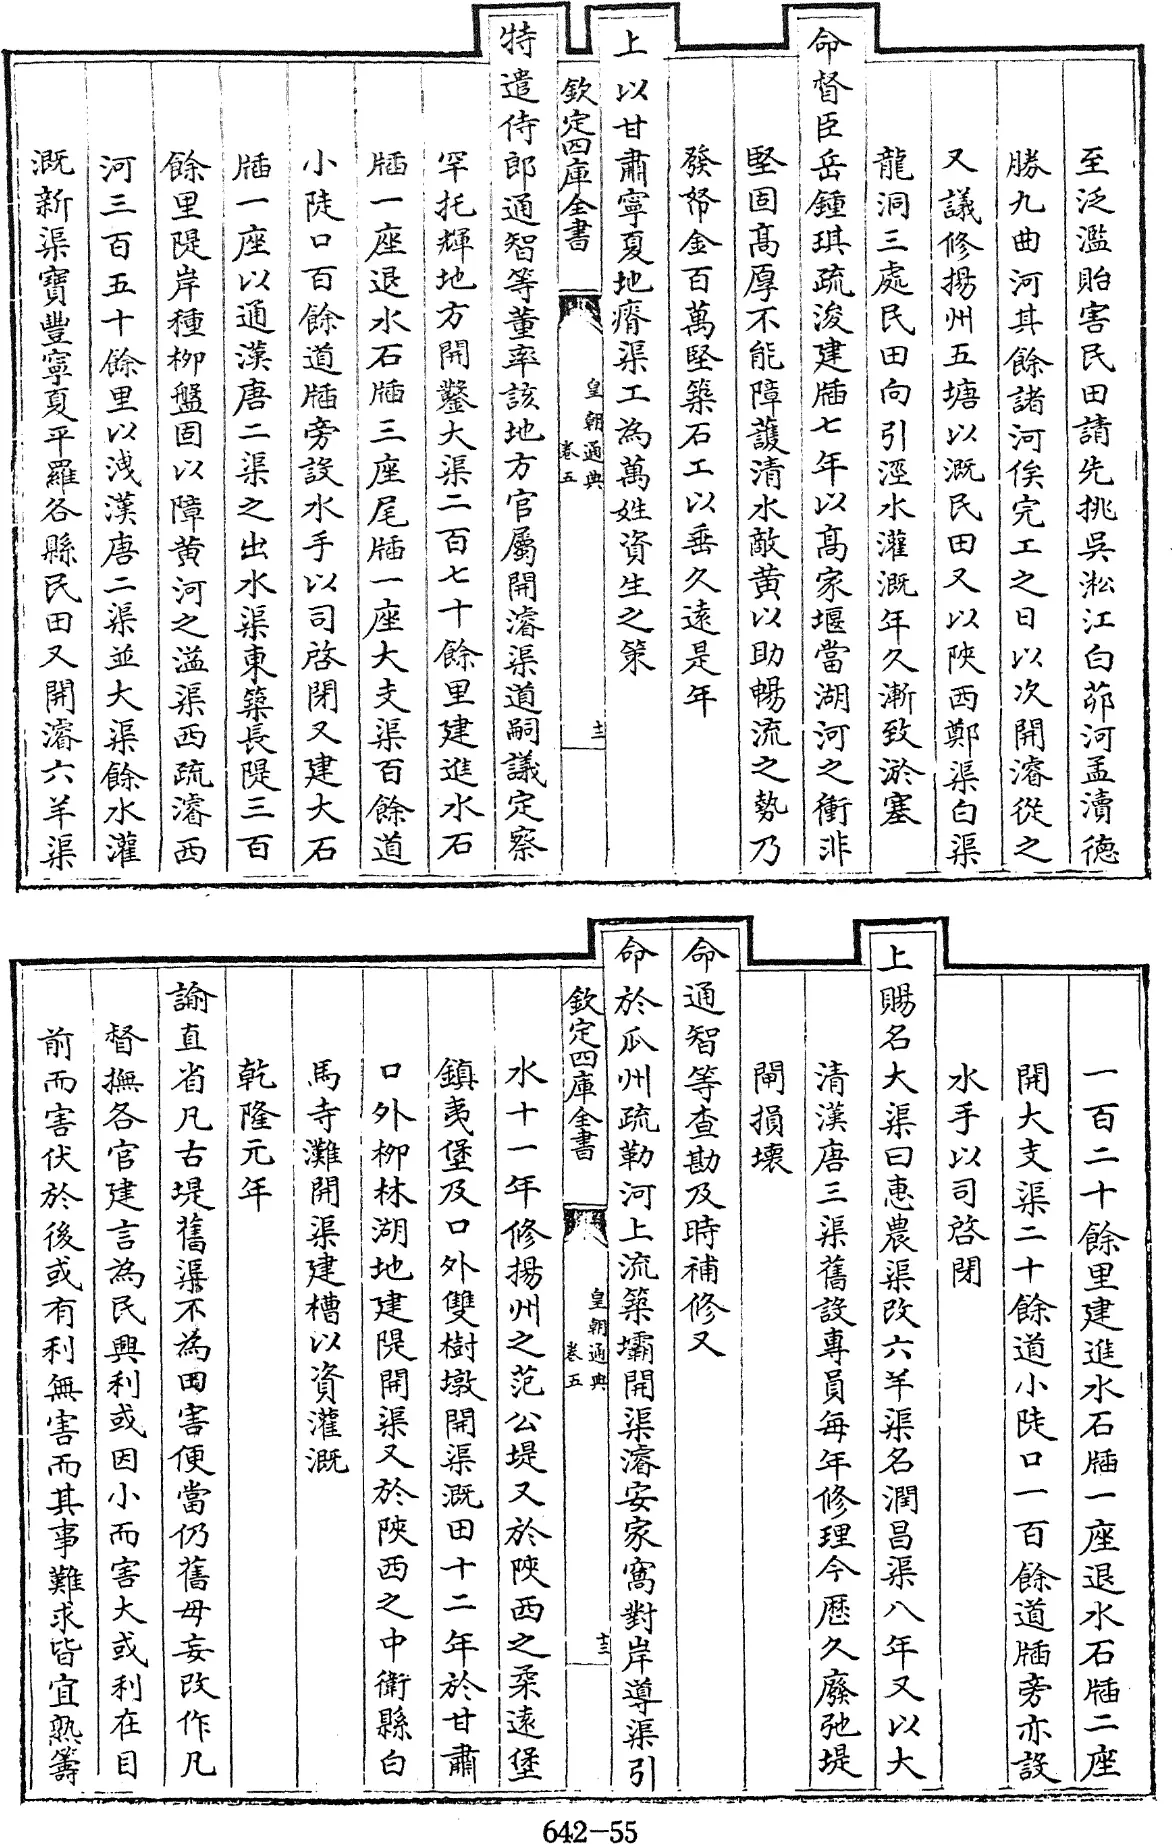 至泛濫貽害民田請先挑吳淞江白茆河孟瀆德
勝九曲河其餘諸河俟完工之日以次開濬從之
又議修揚州五塘以溉民田又以陜西鄭渠白渠
龍洞三處民田向引涇水灌溉年久漸致淤塞
命督臣岳鍾琪疏浚建牐七年以髙家堰當湖河之衝非
堅固髙厚不能障護清水敵黄以助暢流之勢乃
發帑金百萬堅築石工以垂久逺是年
上以甘肅寧夏地瘠渠工為萬姓資生之策
欽定四庫全書
皇朝通典
卷五
十二
特遣侍郎通智等董率該地方官屬開濬渠道嗣議定察
罕托輝地方開鑿大渠二百七十餘里建進水石
牐一座退水石牐三座尾牐一座大支渠百餘道
小陡口百餘道牐旁設水手以司啓閉又建大石
牐一座以通漢唐二渠之出水渠東築長隄三百
餘里隄岸種栁盤固以障黄河之溢渠西疏濬西
河三百五十餘里以洩漢唐二渠並大渠餘水灌
溉新渠寳豐寧夏平羅各縣民田又開濬六羊渠
一百二十餘里建進水石牐一座退水石牐二座
開大支渠二十餘道小陡口一百餘道牐旁亦設
水手以司啓閉
上賜名大渠曰惠農渠改六羊渠名潤昌渠八年又以大
清漢唐三渠舊設專員每年修理今歴久廢弛堤
閘損壊
命通智等查勘及時補修又
命於瓜州疏勒河上流築壩開渠濬安家窩對岸導渠引
欽定四庫全書
皇朝通典
卷五
十三
水十一年修揚州之范公堤又於陜西之柔逺堡
鎮夷堡及口外雙樹墩開渠溉田十二年於甘肅
口外栁林湖地建隄開渠又於陜西之中衛縣白
馬寺灘開渠建槽以資灌溉
乾隆元年
諭直省凡古堤舊渠不為田害便當仍舊毋妄改作凡
督撫各官建言為民興利或因小而害大或利在目
前而害伏於後或有利無害而其事難求皆宜熟籌
642-55